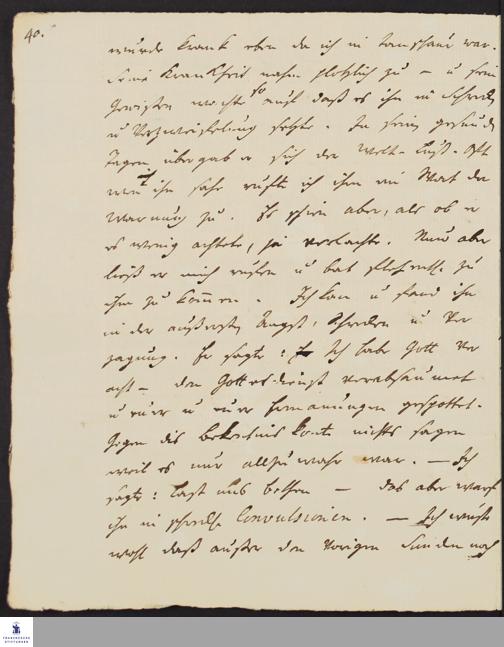 40.
wurde krank eben da ich in war.
Seine Krankheit nahm plötzlich zu – u sein
Gewissen wachte so auf daß es ihn in Schreck
u Verzweifelung setzte. In sein gesund
Tagen übergab er sich der Welt-Lust. Oft
wen ich ihn sahe rufte ich ihm ein Wort der
Warnung zu. Es schien aber, als ob er
es wenig achtete, ja verlachte. Nun aber
ließ er mich rufen u bat flehentl. zu
ihm zu kommen. Ich kam u fand ihn
in der äußersten Angst, Schrecken u Ver
zagung. Er sagte: Ich habe Gott ver
acht – den Gottesdienst verabsäumet
u eure u eure Ermanungen gespottet.
Gegen dis Bekentnis konte nichts sagen
weil es nur allzu wahr war. – Ich
sagte: Last uns bethen – das aber warf
ihn in schreckl. Convulsionen. – Ich wuste
wohl daß außer den vorigen Sünden noch
FRANCKESCHE
STIFTUNGEN